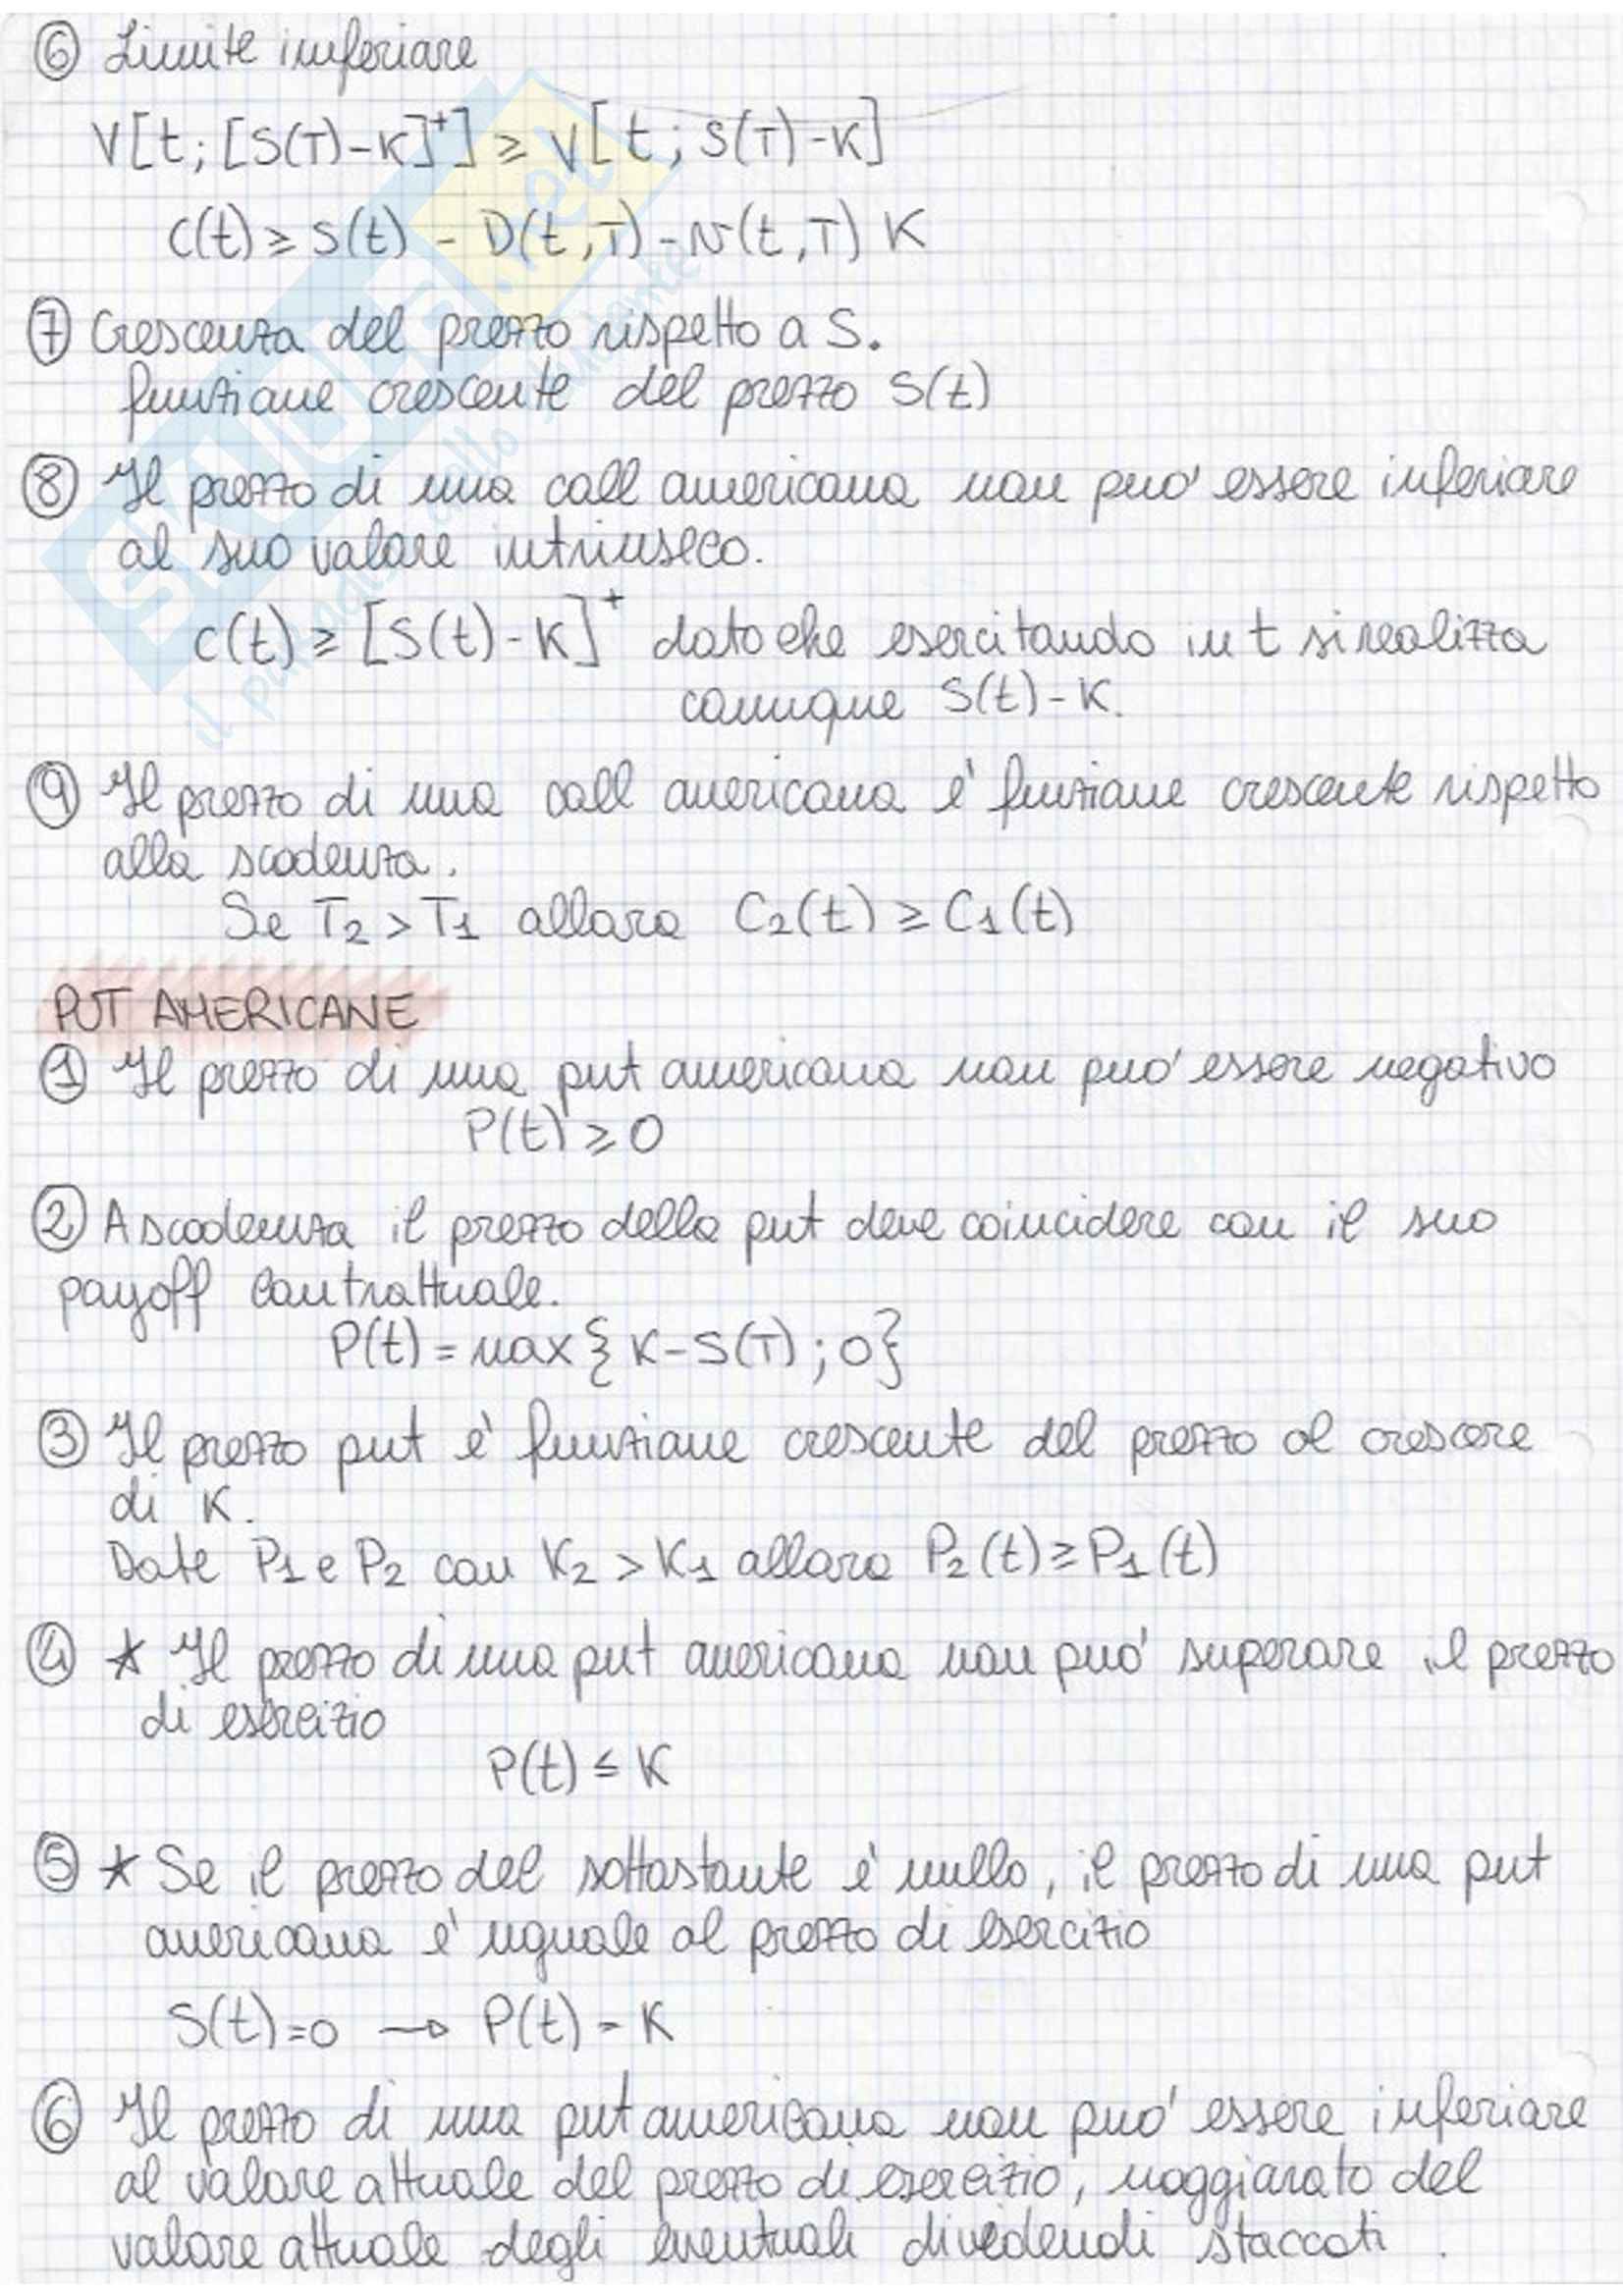 ⑥ Limite inferiore
V[t; [S(T)-K]⁺] ≥ V[t; S(T)-K]
C(t) ≥ S(t) - D(t,T) - v(t,T) K
⑦ Crescenza del prezzo rispetto a S.
funzione crescente del prezzo S(t)
⑧ Il prezzo di una call americana non puo' essere inferiore
al suo valore intrinseco.
C(t) ≥ [S(t)-K]⁺ dato che esercitando in t si realizza
comunque S(t)-K.
⑨ Il prezzo di una call americana e' funzione crescente rispetto
alla scadenza.
Se T₂ > T₁ allora C₂(t) ≥ C₁(t)
PUT AMERICANE
① Il prezzo di una put americana non puo' essere negativo
P(t) ≥ 0
② A scadenza il prezzo della put deve coincidere con il suo
payoff contrattuale.
P(t) = max{K-S(T); 0}
③ Il prezzo put e' funzione crescente del prezzo al crescere
di K.
Date P₁ e P₂ con K₂ > K₁ allora P₂(t) ≥ P₁(t)
④ ★ Il prezzo di una put americana non puo' superare il prezzo
di esercizio
P(t) ≤ K
⑤ ★ Se il prezzo del sottostante e' nullo, il prezzo di una put
americana e' uguale al prezzo di esercizio
S(t)=0 → P(t) = K
⑥ Il prezzo di una put americana non puo' essere inferiore
al valore attuale del prezzo di esercizio, maggiorato del
valore attuale degli eventuali dividendi staccati.
SKUOLA.net
il paradiso dello studente